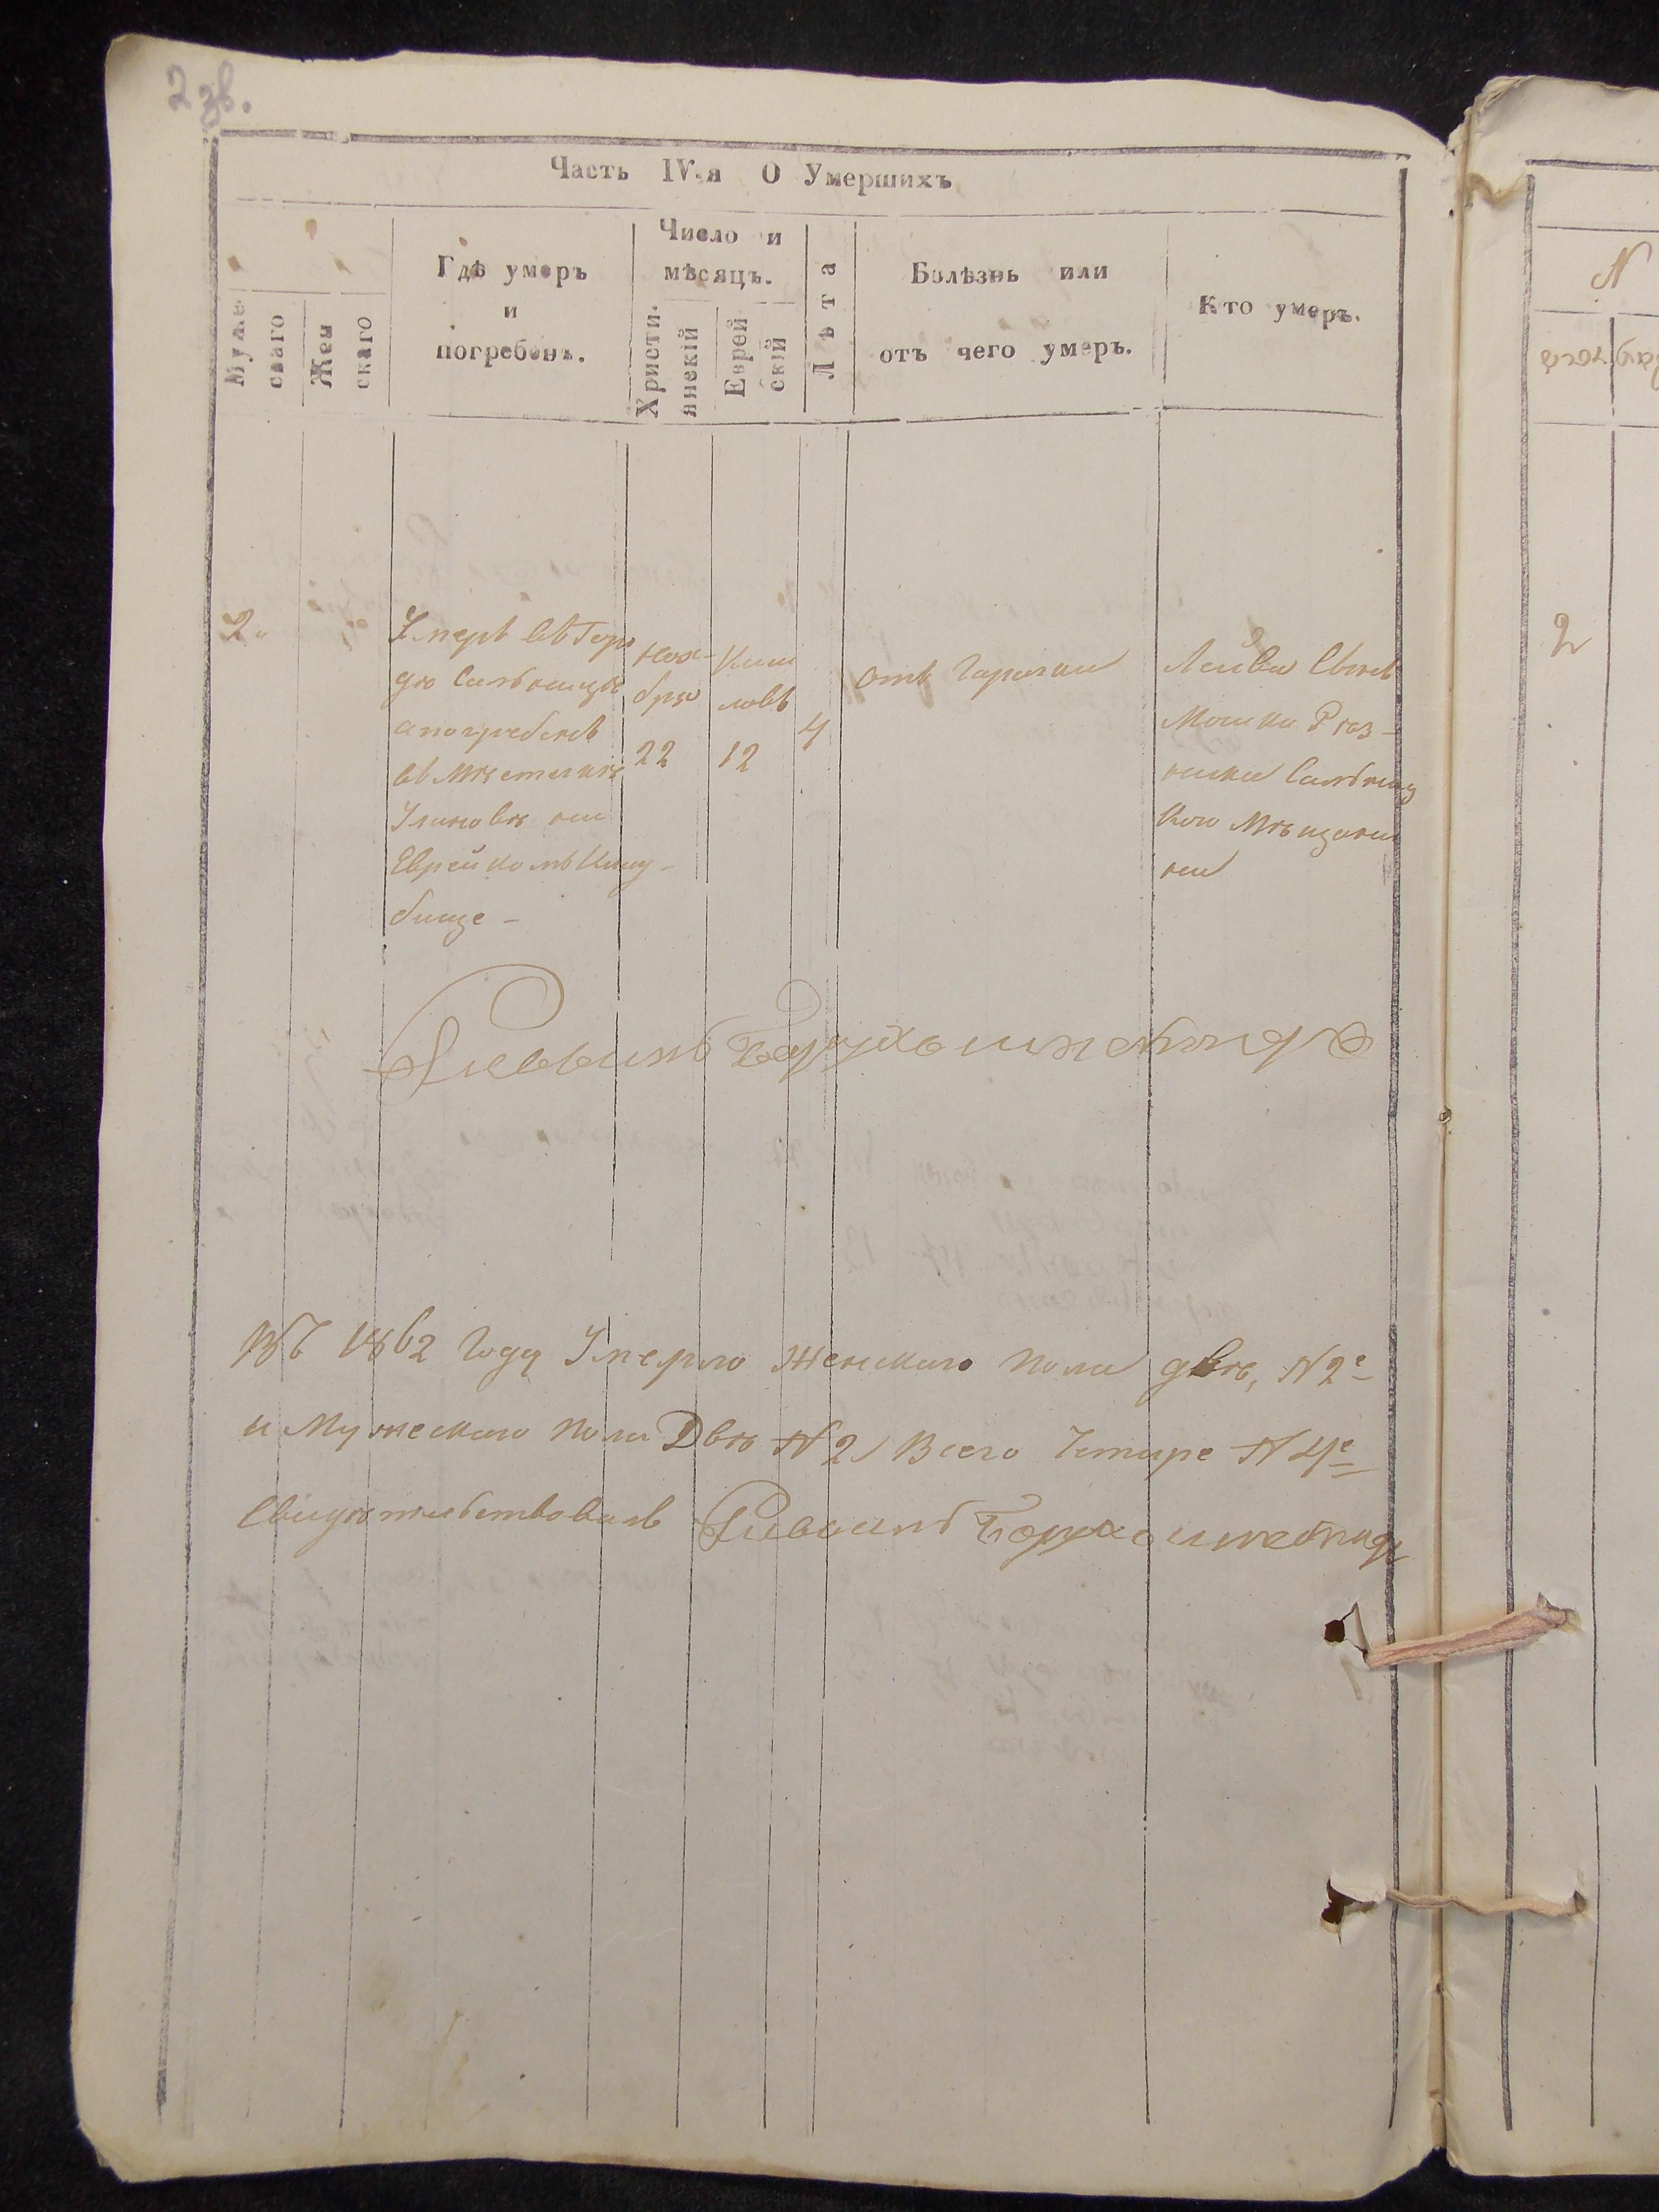 2 зв.
Часть IV-я О Умершихъ
Мужескаго
Женскаго
Гдѣ умеръ
и
погребенъ.
Число и
мѣсяцъ.
Христіянскій
Еврейскій
Лѣта
Болѣзнь или
отъ чего умеръ.
Кто умеръ.
2
Умеръ въ Горо
дѣ Сальницѣ
а погребенъ
въ Мѣстечкѣ
Улановѣ на
Еврейкомъ Клад-
бище -
Ноя-
бря
22
Кис
ловъ
12
4
отъ Горячки
Лейба Сынъ
Мошка Рѣз-
ника Сальниц
Кого Мѣщани
на
Раввинъ Борухъ
Въ 1862 Году Умерло Женскаго Пола двѣ, N 2е
и Мужескаго Пола Двѣ N 2 Всего Четыре N 4е
Свидѣтельствовалъ Раввинъ Борухъ
N
2